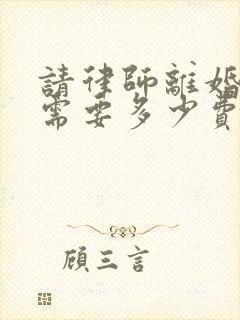 請律師離婚
需要多少費
顾三言